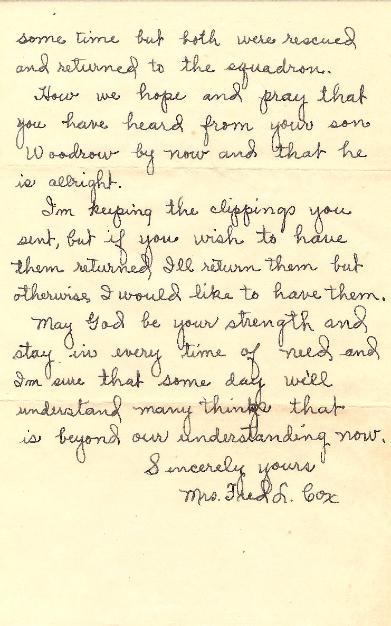 some time but both were rescued
and returned to the squadron.
How we hope and pray that
you have heard from your son
Woodrow by now and that he
is allright.
I'm keeping the clippings you
sent, but if you wish to have
them returned I'll return them but
otherwise I would like to have them.
May God be your strength and
stay in every time of need and
I'm sure that some day we'll
understand many things that
is beyond our understanding now.
Sincerely yours
Mrs. Fred L. Cox